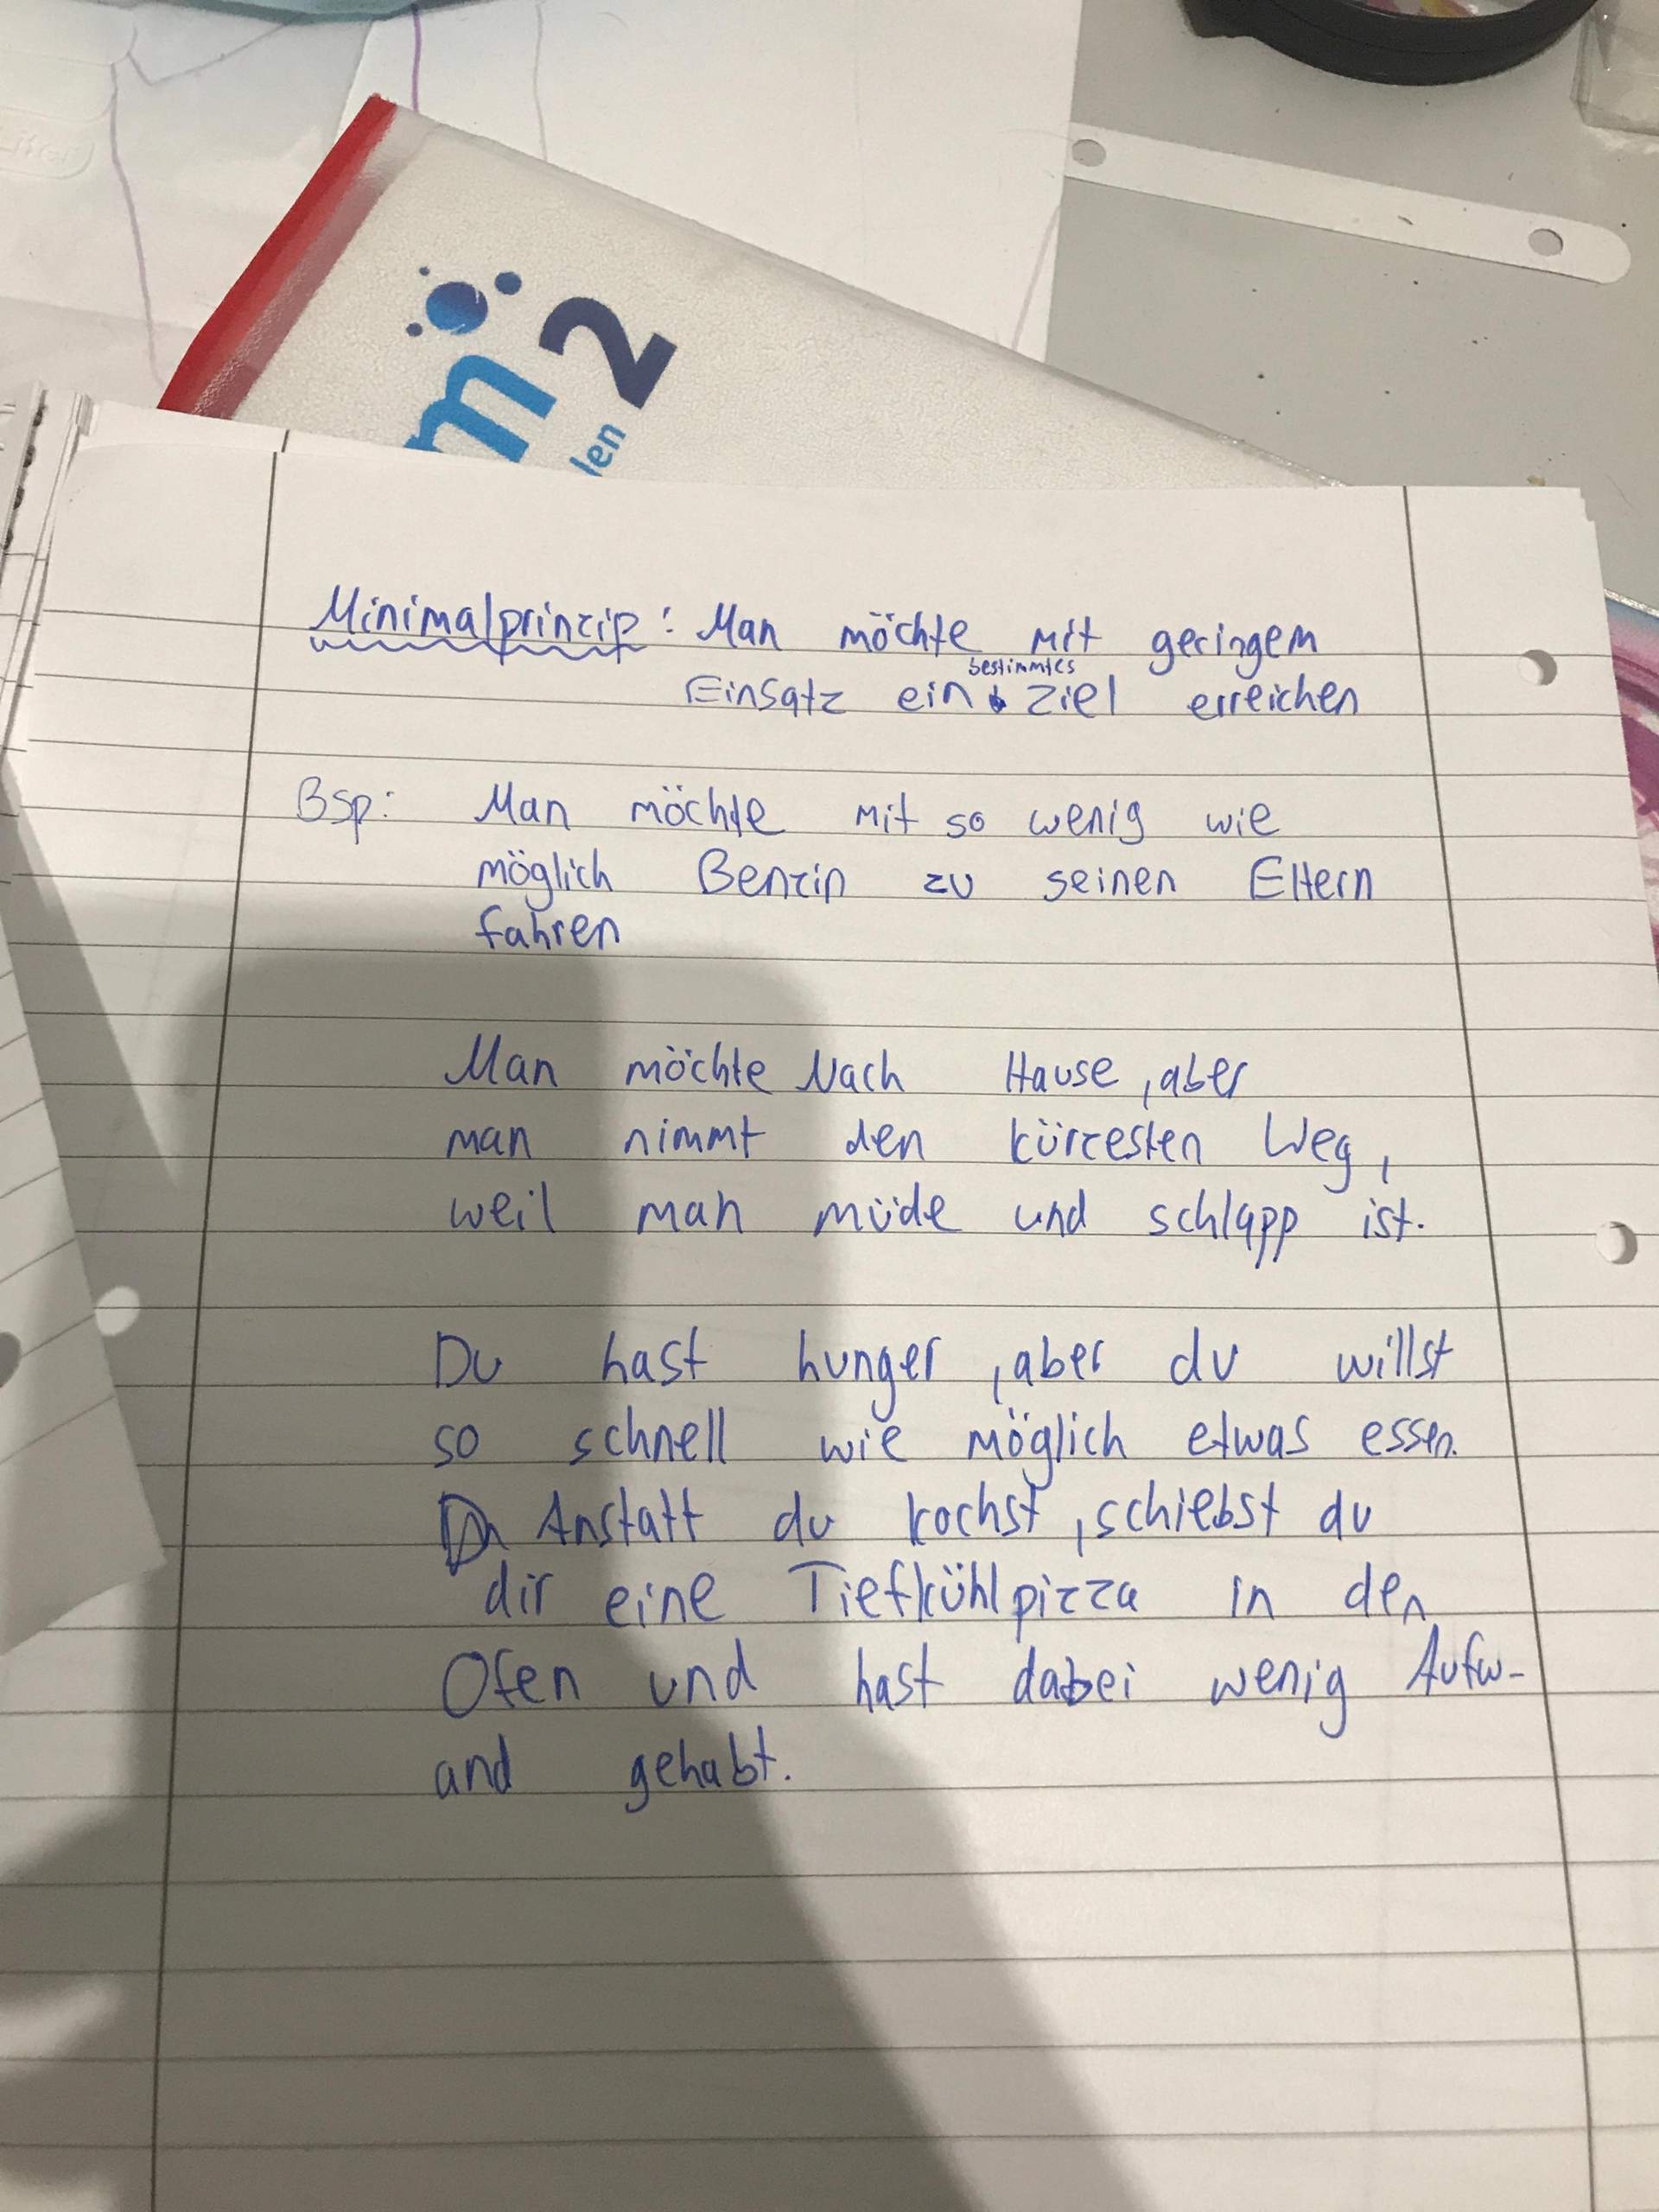 m2
len
Minimalprinzip: Man möchte mit geringem
bestimmtes
Einsatz ein Ziel erreichen
Bsp: Man möchte mit so wenig wie
möglich Benzin zu seinen Eltern
fahren
Man möchte Nach Hause, aber
man nimmt den kürzesten Weg,
weil man müde und schlapp ist.
Du hast hunger, aber du willst
so schnell wie möglich etwas essen.
Anstatt du kochst, schiebst du
dir eine Tiefkühlpizza in den
Ofen und hast dabei wenig Aufw-
and gehabt.